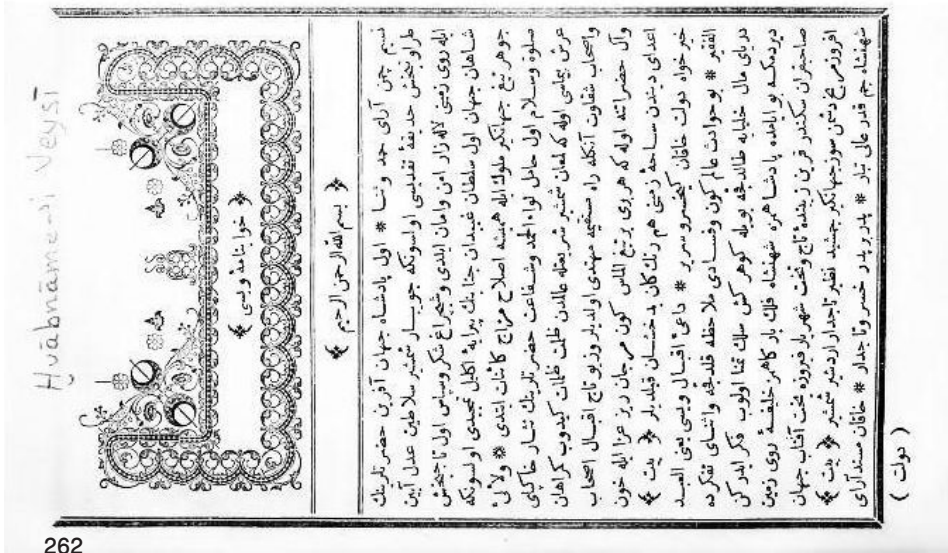 Ḫᵛābnāme-i Veysī
﴿ خوابنامهٔ ویسی ﴾
﴿ بسم الله الرحمن الرحیم ﴾
نسیم چمن آرای حمد وثنا * اول پادشاه جهان آفرین حضرتلرینك
طراوتبخش حدیقهٔ تقدیسی اولسونكه جویبار شمشیر سلاطین عدل آیین
ایله روی زمینی لاله زار امن وامان ایلدی وشبچراغ شكر وسپاس اول تاجبخش
شاهان جهان اول سلطان غیبدان جنابنك پیرایهٔ اكلیل تمجیدی اولسونكه
جوهر تیغ جهانكیر ملوك ایله همیشه اصلاح مزاج كائنات ایتدی * ولآلئ
صلوة وسلام اول حامل لواء الحمد وشفاعت حضرتلرینك نثار خاكپای
عرش پیماسی اوله كه لمعان شمشیر شریعتله عالمدن ظلمت كیدوب كمراهان
واصحاب شقاوت آنكله راه مستقیمه مهتدی اولدیلر تاج اقبال اصحاب
وآل حضراتنه اوله كه هربری برتیغ الماس كون مرجان ریز غزا ایله خون
اعدای دیندن ساحهٔ زمینی هم رنك كان بدخشان قیلدیلر ﴿ بیت ﴾
خیر خواه دولت خاقان كیخسرو سریر * داعئ اقبال ویسی یعنی العبد
الفقیر * بوحوادث عالم كون وفسادی ملاحظه قلدقجه واثنای تفكرده
دریای مال خلیایه طالدقجه بویله كوهر كش سلك تمنا اولوب فكر ایدركن
دیردمكه بو ایامده پادشاهمز شهنشاه فلك بار كاهمز خلیفهٔ روی زمین
صاحبقران سكندر قرین زیبندهٔ تاج وتخت شهریار فیروزه تخت آفتاب جهان
افروز دشمن سوز جهانكیر جمشید نظیر تاجدار اردشیر شمشیر ﴿ بیت ﴾
شهنشاه جم قدر عالی تبار * پدر بر پدر خسرو تاجدار * خاقان مسند آرای
( دولت )
262